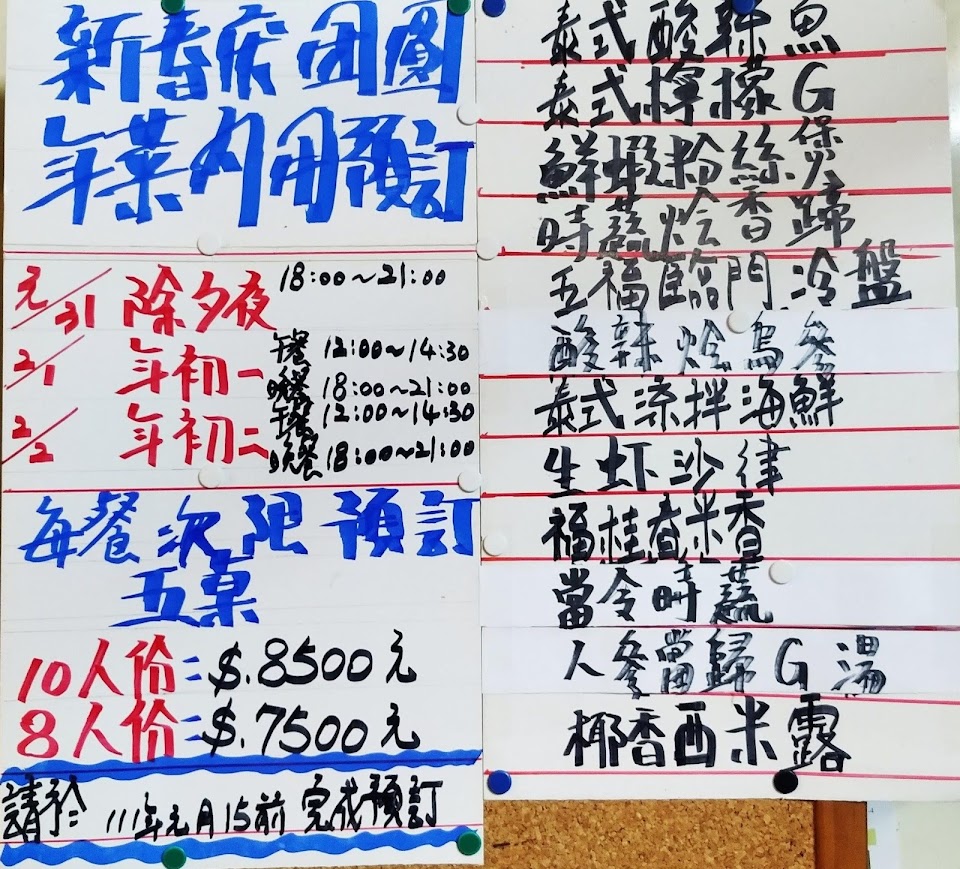 新春庆团圓
年菜内用預訂
元/31 除夕夜 18:00~21:00
2/1 年初一 午餐 12:00~14:30
晚餐 18:00~21:00
2/2 年初二 午餐 12:00~14:30
晚餐 18:00~21:00
每餐次限預訂
五桌
10人份=$.8500元
8人份=$.7500元
請於111年元月15前完成預訂
泰式酸辣魚
泰式檸檬G
鮮蝦粉絲煲
時蔬烩香蹄
五福臨門冷盤
酸辣烩烏參
泰式涼拌海鮮
生虾沙律
福桂春米香
當令時蔬
人參當歸G湯
椰香西米露